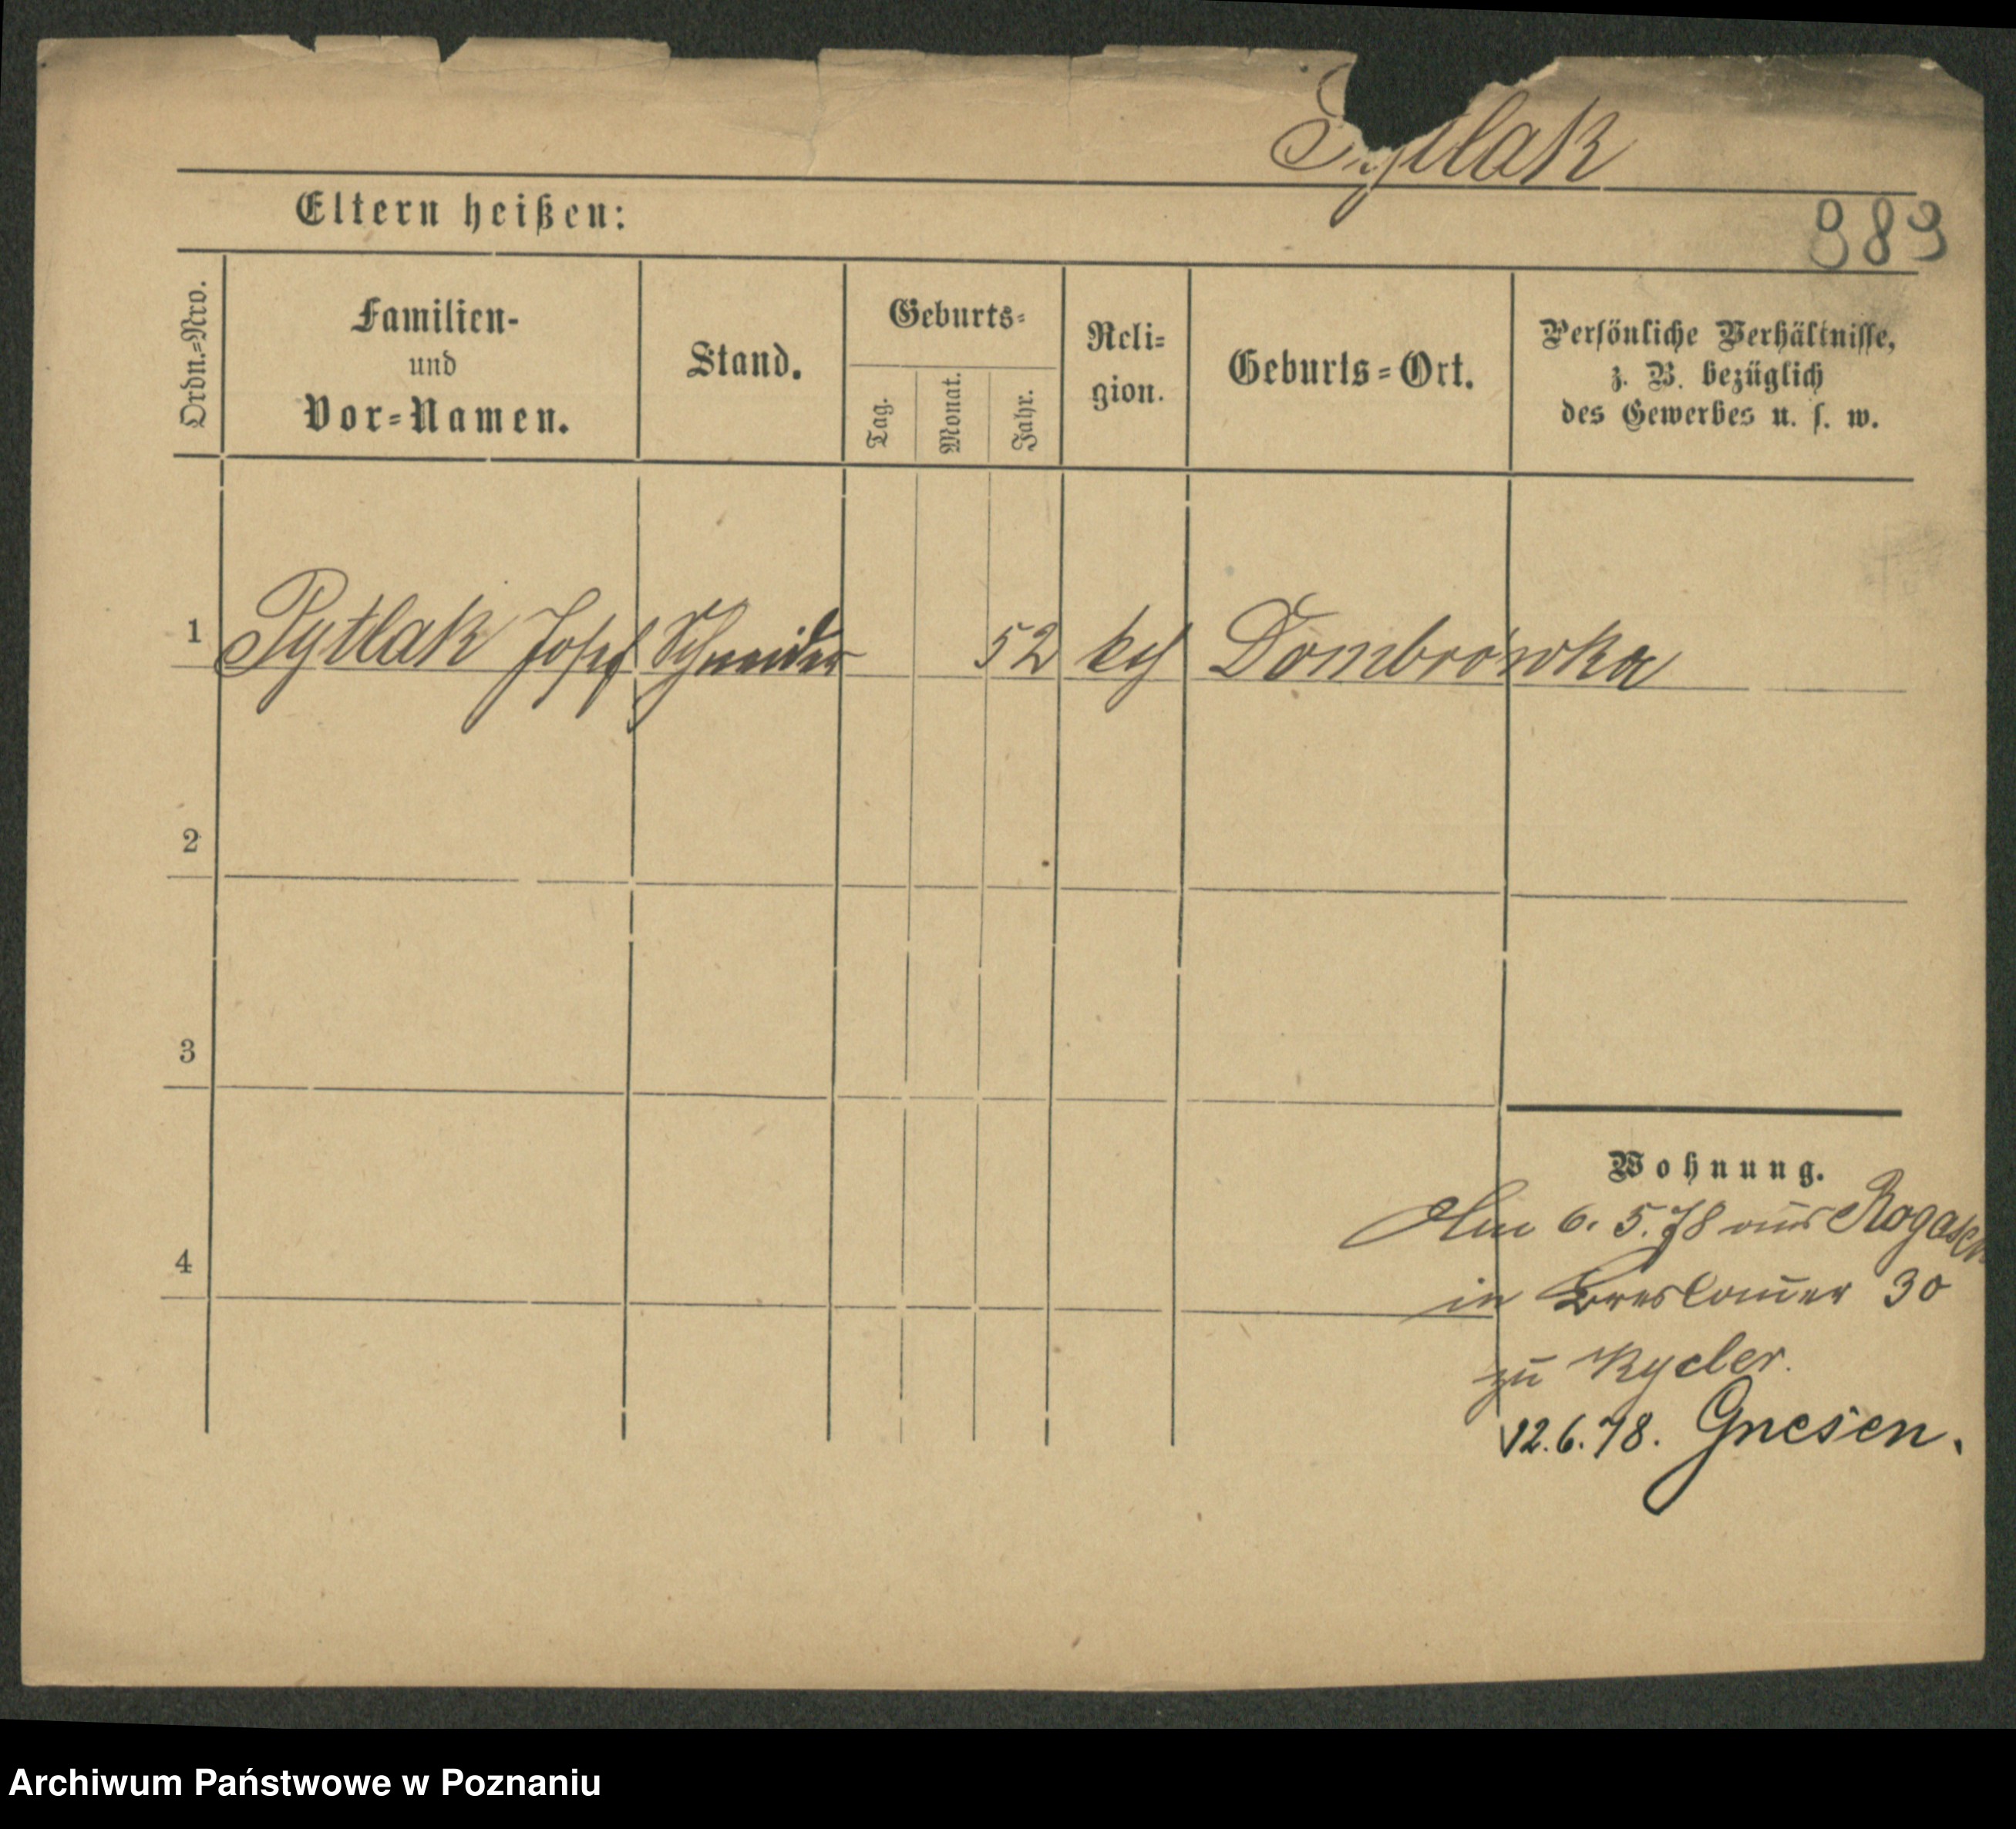 Pytlak
Eltern heißen:
989
Ordn.=Nro.
Familien-
und
Vor=Namen.
Stand.
Geburts=
Tag.
Monat.
Jahr.
Reli=
gion.
Geburts=Ort.
Persönliche Verhältnisse,
z. B. bezüglich
des Gewerbes u. s. w.
1 Pytlak Josef Schneider 52 kth Dombrówka
2
3
4
Wohnung.
Am 6. 5. 78 aus Rogasen
in Breslauer 30
zu Rycler.
12. 6. 78. Gnesen.
Archiwum Państwowe w Poznaniu